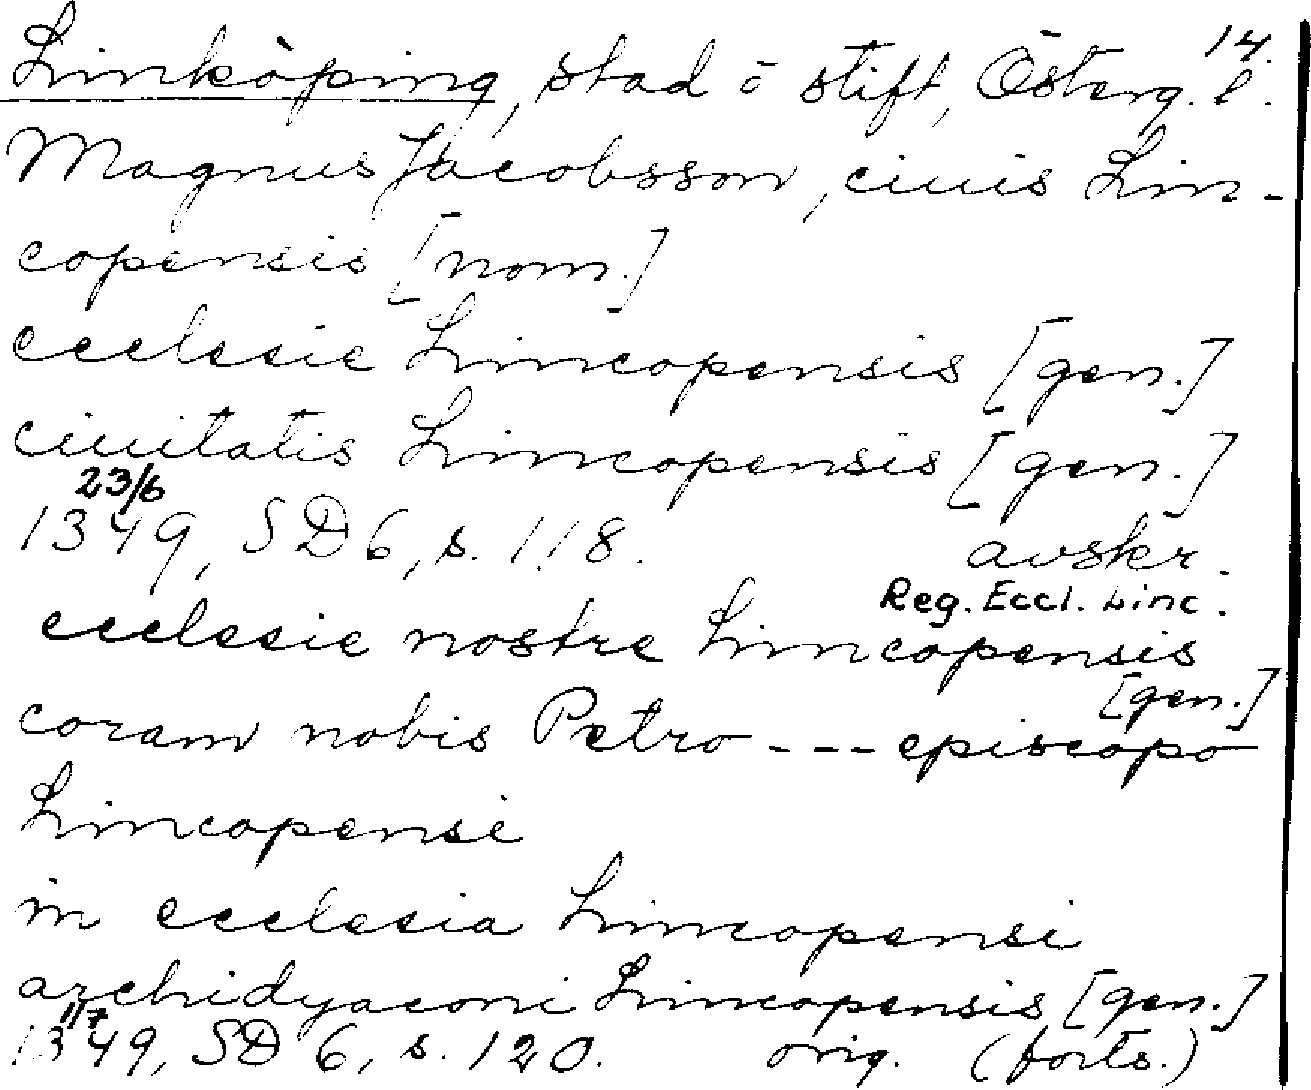 14.
Linköping, stad o stift, Österg. l.
Magnus Jacobsson, ciuis Lin-
copensis [nom.]
ecclesie Lincopensis [gen.]
ciuitatis Lincopensis [gen.]
23/6
1349, SD 6, s. 118. avskr.
Reg. Eccl. Linc.
ecclesie nostre Lincopensis
[gen.]
coram nobis Petro --- episcopo
Lincopensi
in ecclesia Lincopensi
archidyaconi Lincopensis [gen.]
1/7
1349, SD 6, s. 120. orig. (forts.)